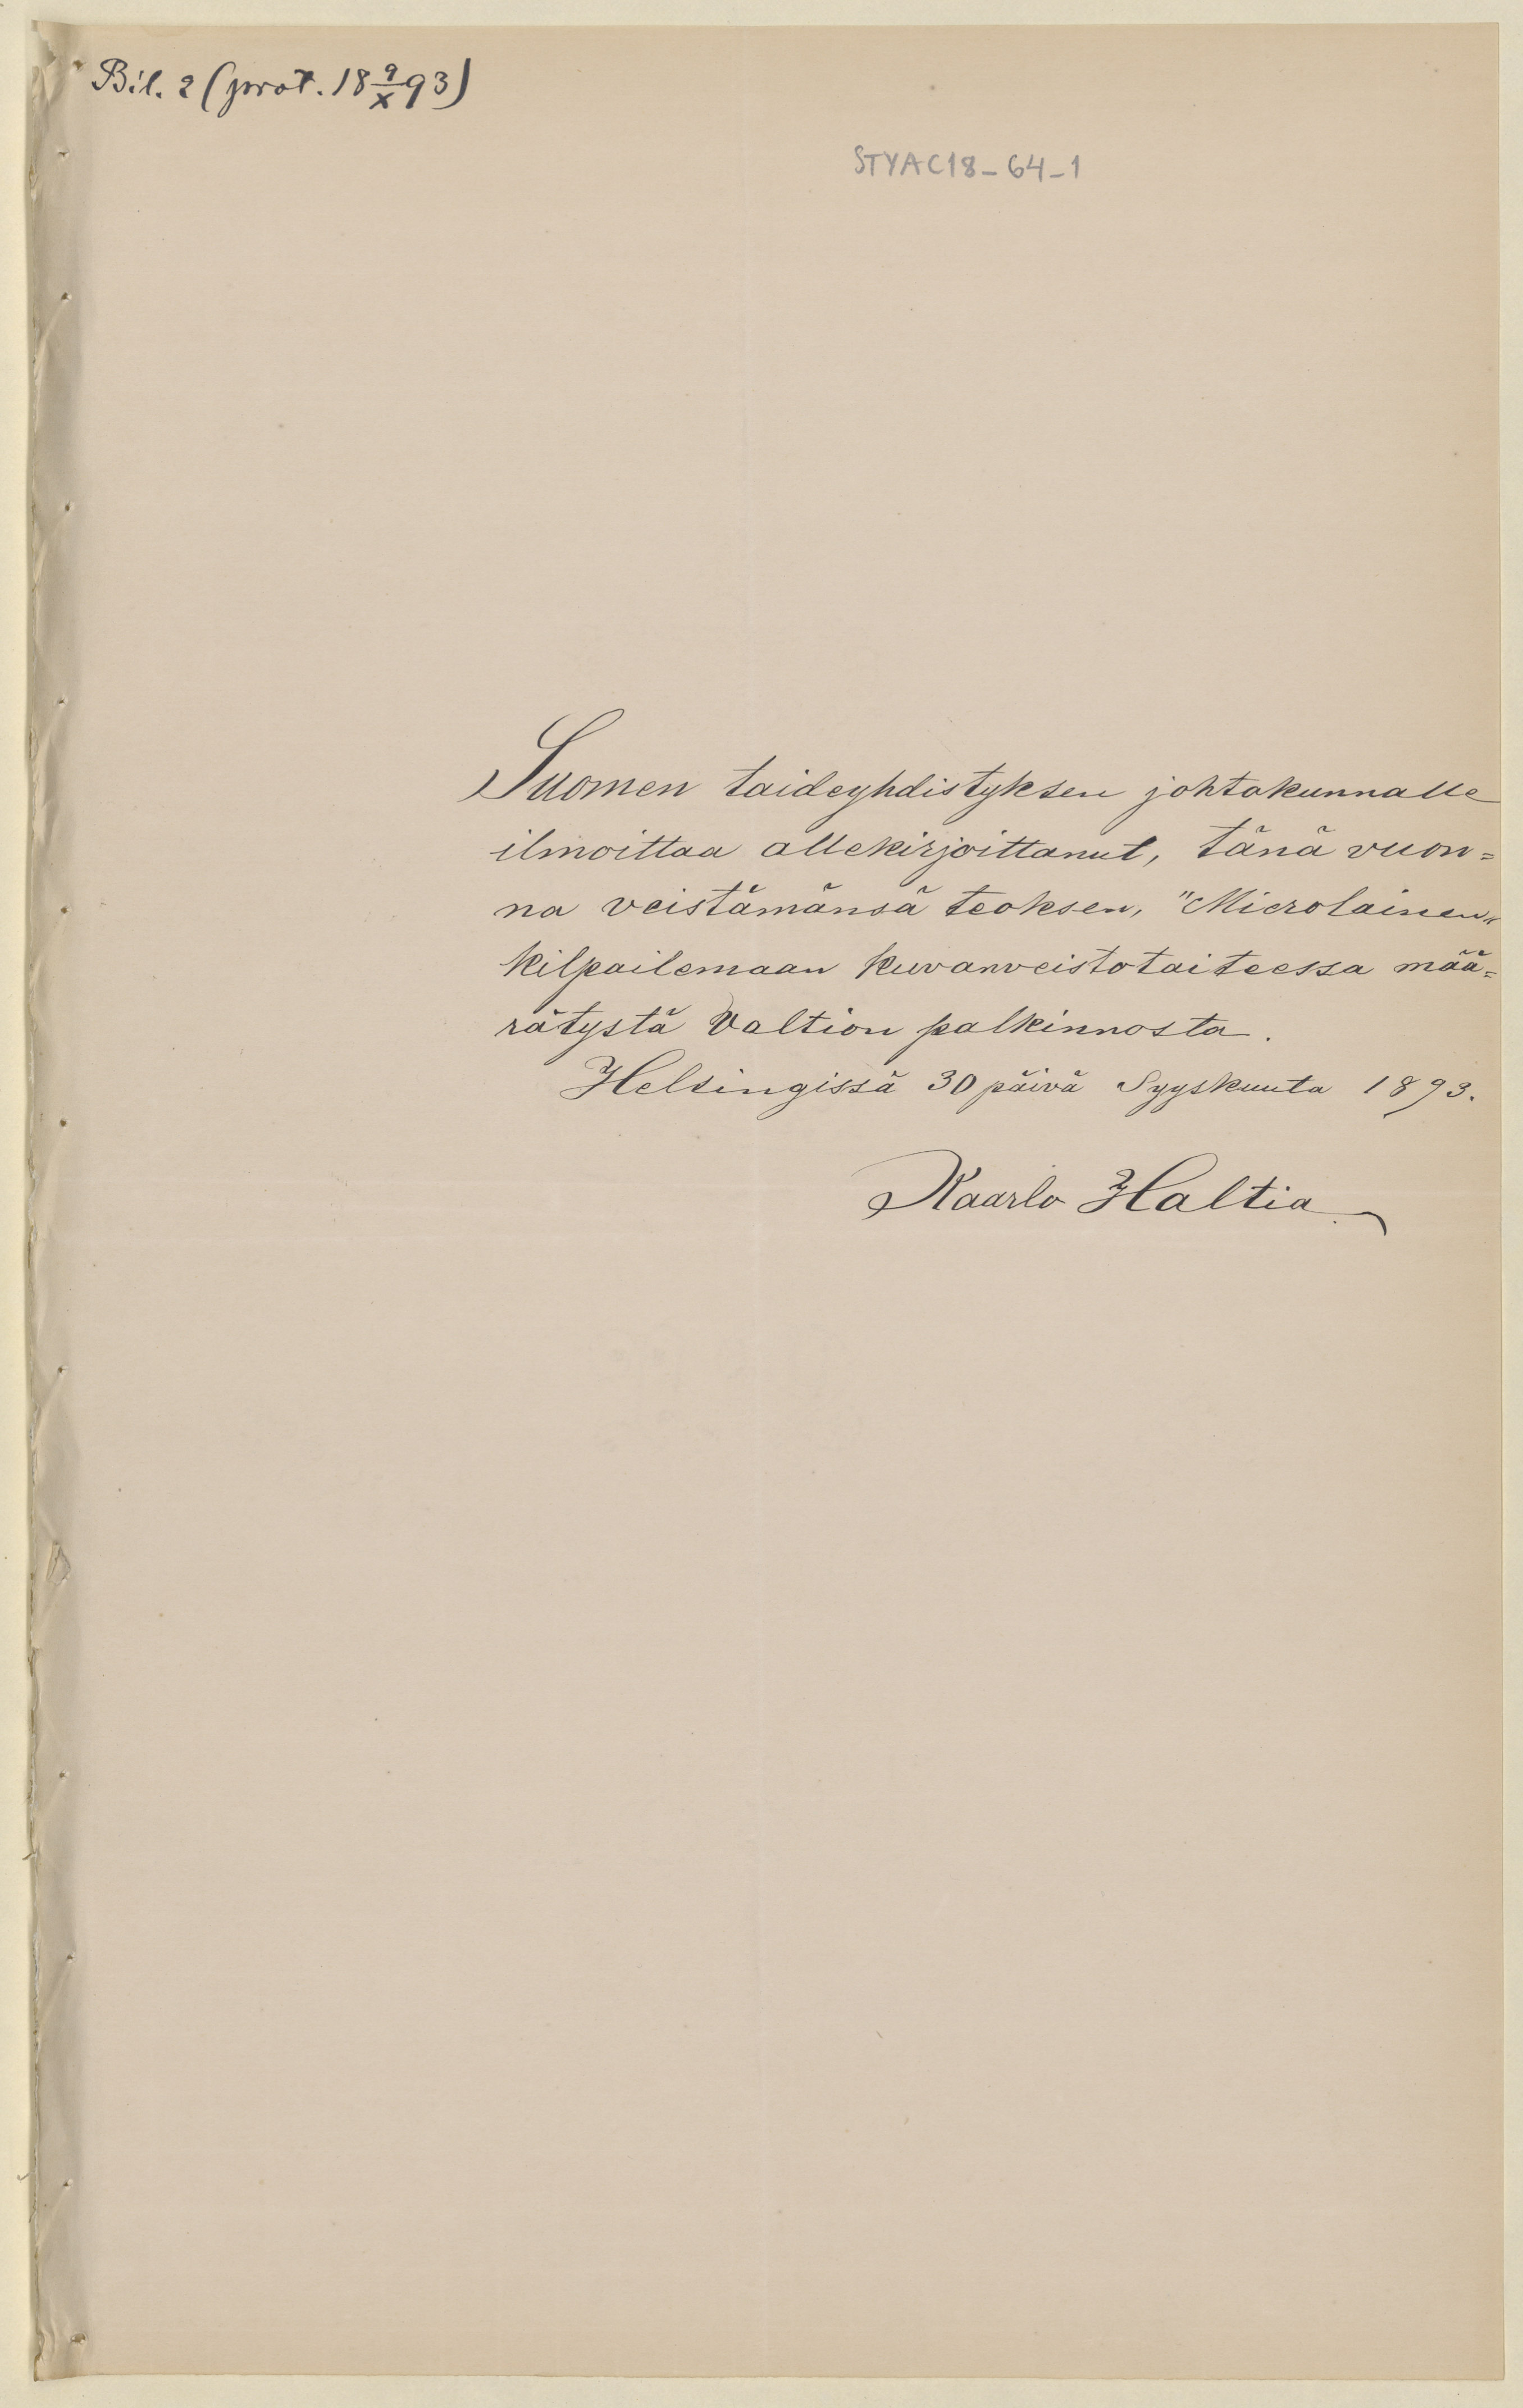 Bil. 2 (prot. 18 9/X 93)
STYAC18-64-1
Suomen taideyhdistyksen johtakunnalle
ilmoittaa allekirjoittanut, tänä vuon=
na veistämänsä teoksen, "Mierolainen"
kilpailemaan kuvanveistotaiteessa mää=
rätystä Valtion palkinnosta.
Helsingissä 30 päivä Syyskuuta 1893.
Kaarlo Haltia